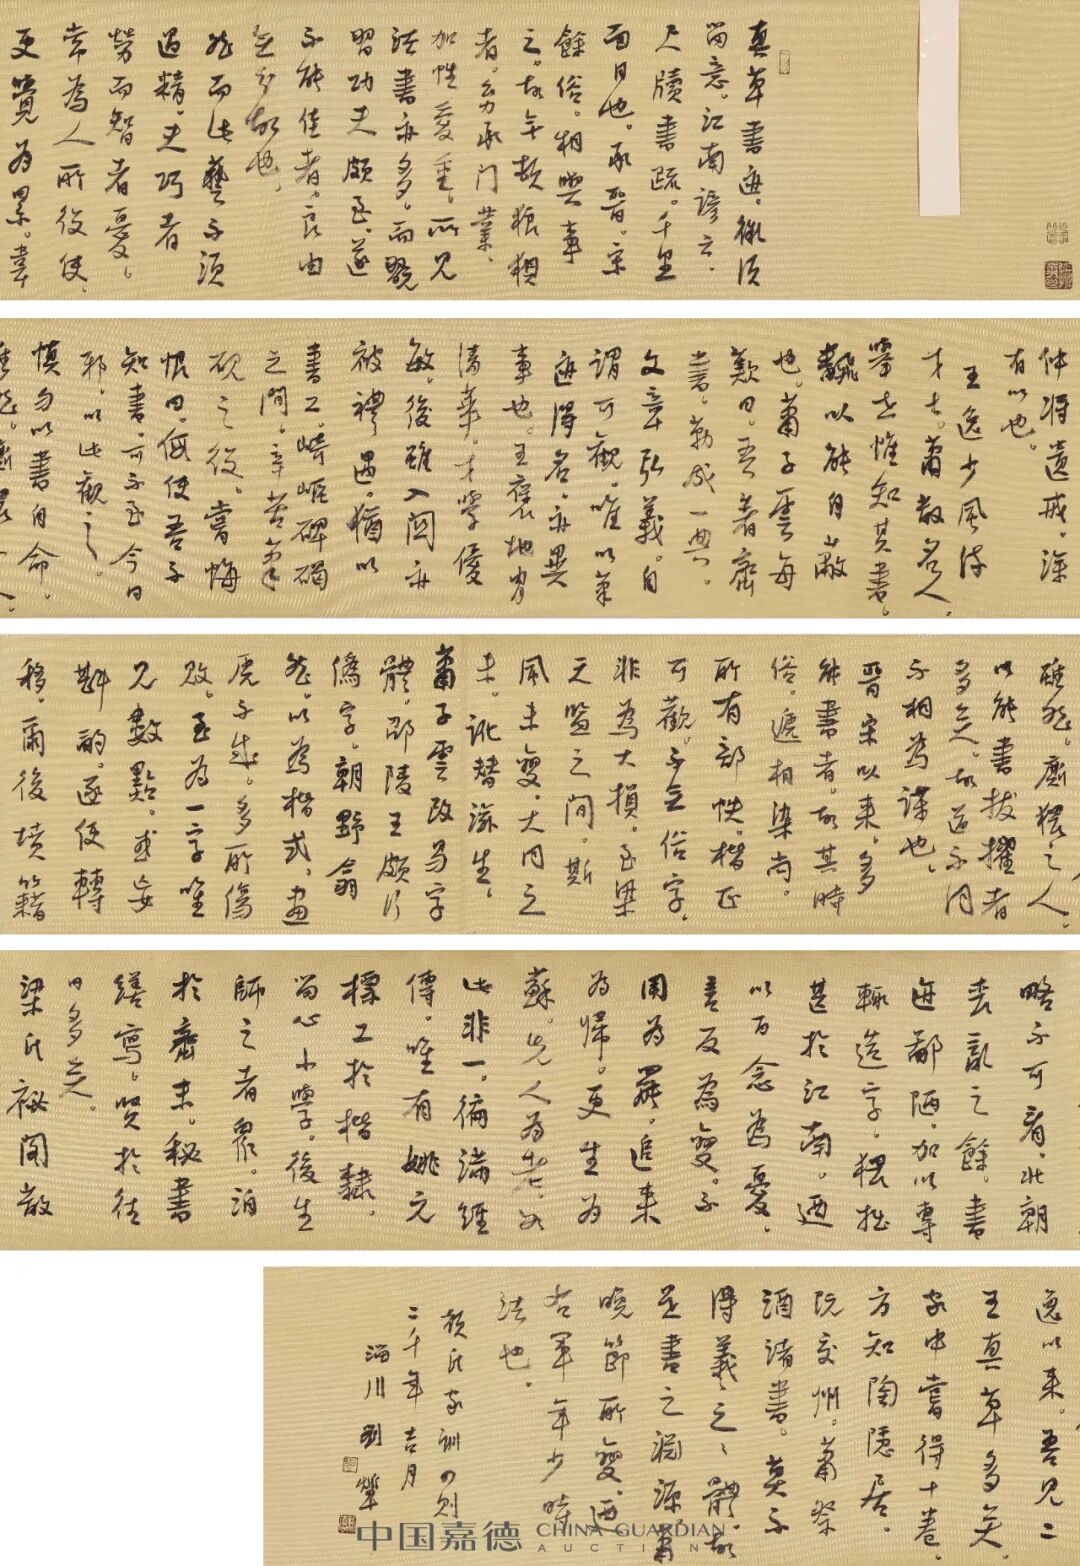 真草書迹。微須
留意。江南諺云。
尺牘書疏。千里
面目也。承晉。宋
餘俗。相與事
之。故無頓狼狽
者。幼承门業。
加性愛重。所見
法書亦多。而翫
習功夫頗至。遂
不能佳者。良由
無分故也。
然而此藝不須
過精。夫巧者
勞而智者憂。
常為人所役使。
更覺為累。韋
仲將遺戒。深
有以也。
王逸少風流
才士。蕭散名人。
舉世惟知其書。
翻以能自蔽
也。蕭子雲每
歎曰。吾著齊
書。勒成一典。
文章弘義。自
謂可觀。唯以筆
迹得名。亦異
事也。王褒地胄
清華。才學優
敏。後雖入關亦
被禮遇。猶以
書工。崎嶇碑碣
之間。辛苦筆
硯之役。嘗悔
恨曰。假使吾不
知書。可不至今日
邪。以此觀之。
慎勿以書自命。
雖然。廝猥之人。
雖然。廝猥之人。
以能書拔擢者
多矣。故道不同
不相為謀也。
晉宋以來。多
能書者。故其時
俗。遞相染尚。
所有部帙。楷正
可觀。不無俗字。
非為大損。至梁
天監之間。斯
風未變。大同之
末。訛替滋生。
蕭子雲改易字
體。邵陵王頗行
偽字。朝野翕
然。以為楷式。畫
虎不成。多所傷
敗。至為一字唯
見數點。或妄
斟酌。遂便轉
移。爾後墳籍
略不可看。北朝
喪亂之餘。書
迹鄙陋。加以專
輒造字。猥拙
甚於江南。迺
以百念為憂。
言反為變。不
用為罷。追来
為歸。更生為
蘇。先人為老。如
此非一。徧滿經
傳。唯有姚元
標工於楷隸。
留心小學。後生
師之者眾。洎
於齊末。秘書
繕寫。賢於往
日多矣。
梁氏祕閣散
逸以来。吾見二
王真草多矣。
家中嘗得十卷。
方知陶隱居。
阮交州。蕭祭
酒諸書。莫不
得羲之之體。故
是書之淵源。蕭
晚節所變。迺
右軍年少時
法也。
顏氏家訓四則
二千年吉月
淄川劉犖
中国嘉德 CHINA GUARDIAN
AUCTIONS